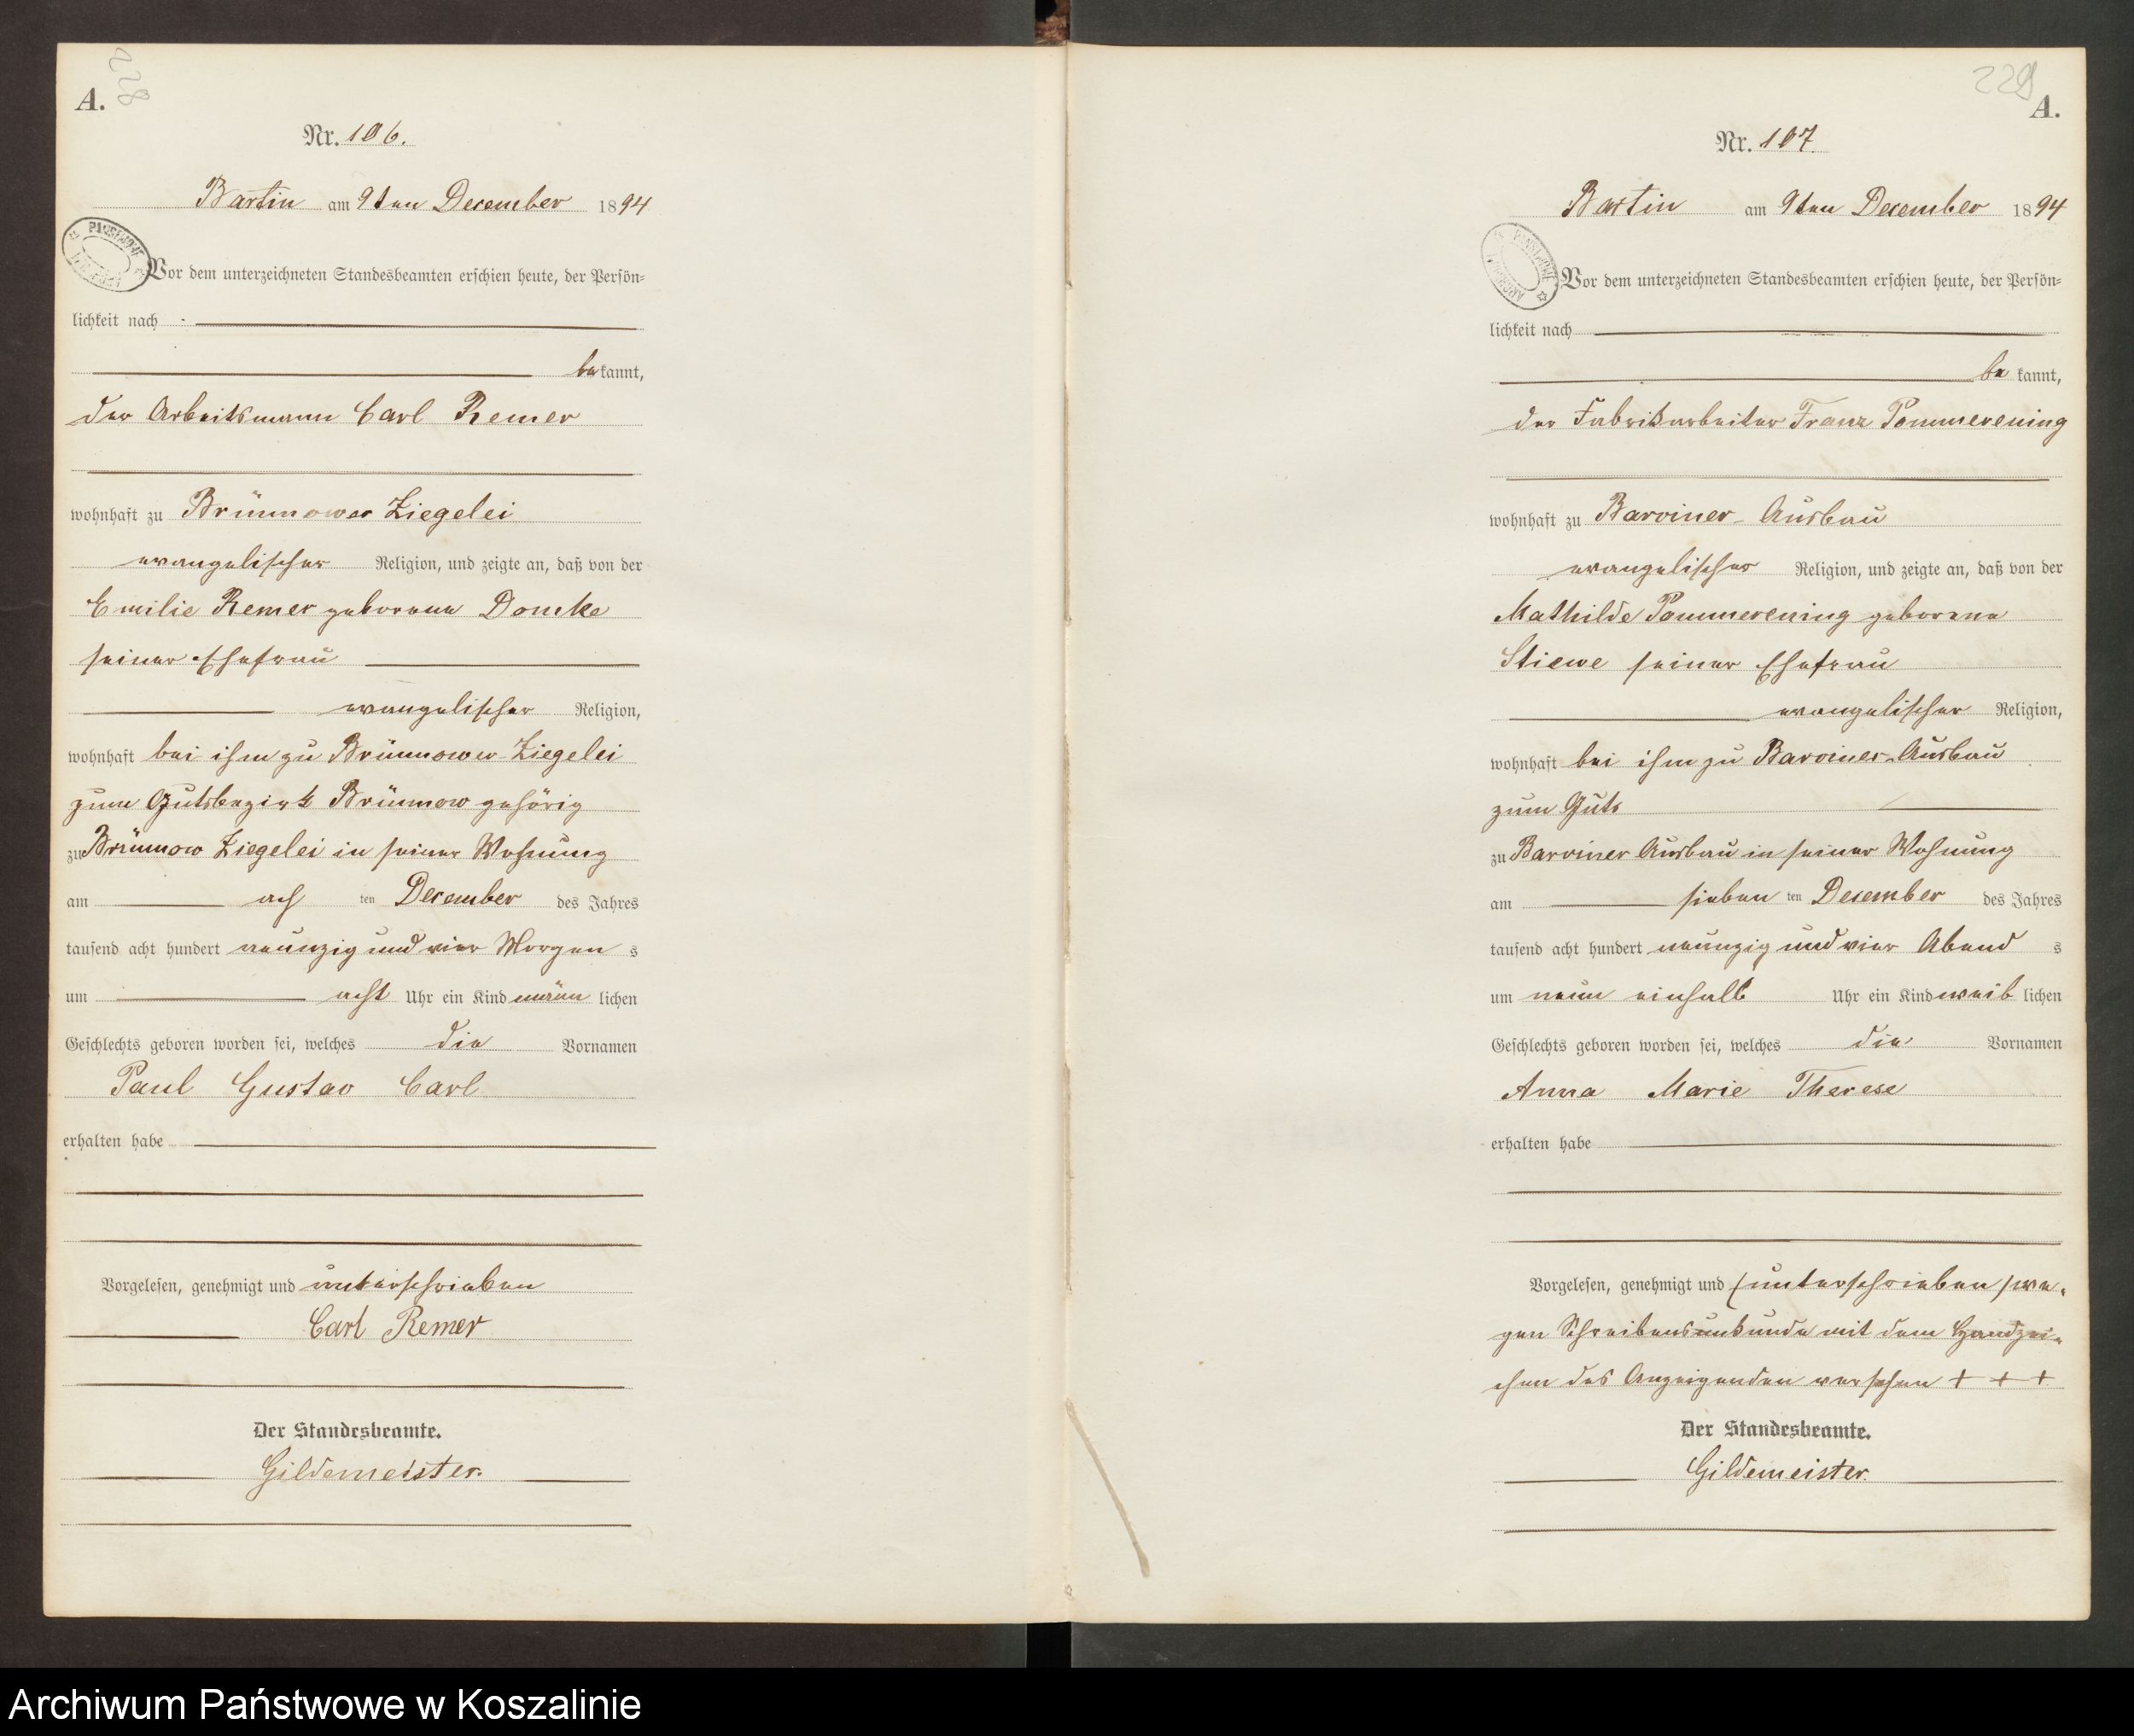 A.
228
Nr. 106.
Bartin am 9ten December 1894
Vor dem unterzeichneten Standesbeamten erschien heute, der Persön=
lichkeit nach
bekannt,
der Arbeitsmann Carl Remer
wohnhaft zu Brünnower Ziegelei
evangelischer Religion, und zeigte an, daß von der
Emilie Remer geborene Domke
seiner Ehefrau
evangelischer Religion,
wohnhaft bei ihm zu Brünnower-Ziegelei
zum Gutsbezirk Brünnow gehörig
zu Brünnow Ziegelei in seiner Wohnung
am ach ten December des Jahres
tausend acht hundert neunzig und vier Morgen s
um acht Uhr ein Kind männ lichen
Geschlechts geboren worden sei, welches die Vornamen
Paul Gustav Carl
erhalten habe
Vorgelesen, genehmigt und unterschrieben
Carl Remer
Der Standesbeamte.
Gildemeister.
229
A.
Nr. 107.
Bartin am 9ten December 1894
Vor dem unterzeichneten Standesbeamten erschien heute, der Persön=
lichkeit nach
be kannt,
der Fabrikarbeiter Franz Pommerening
wohnhaft zu Barviner-Ausbau
evangelischer Religion, und zeigte an, daß von der
Mathilde Pommerening geborene
Stiewe seiner Ehefrau
evangelischer Religion,
wohnhaft bei ihm zu Barviner-Ausbau
zum Guts
zu Barviner Ausbau in seiner Wohnung
am sieben ten December des Jahres
tausend acht hundert neunzig und vier Abend s
um neun einhalb Uhr ein Kind weib lichen
Geschlechts geboren worden sei, welches die Vornamen
Anna Marie Therese
erhalten habe
Vorgelesen, genehmigt und (unterschrieben) we-
gen Schreibensunkunde mit dem Handzei-
chen des Anzeigenden versehen + + +
Der Standesbeamte.
Gildemeister.
Archiwum Państwowe w Koszalinie